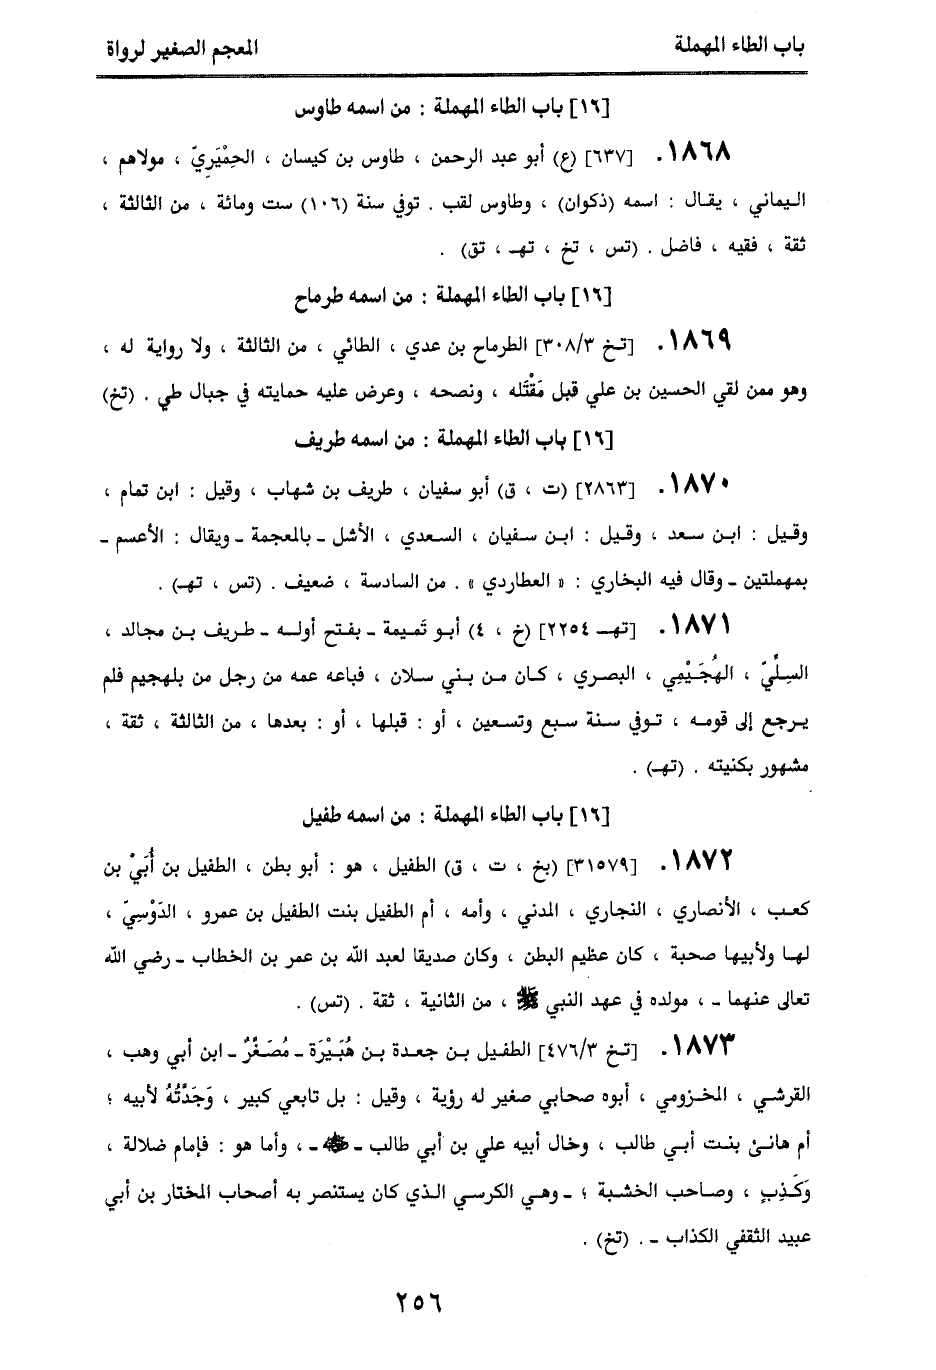 باب الطاء المهملة
المعجم الصغير لرواة
[١٦] باب الطاء المهملة : من اسمه طاوس
١٨٦٨. [٦٣٧] (ع) أبو عبد الرحمن ، طاوس بن كيسان ، الحِمْيَرِيّ ، مولاهم ،
اليماني ، يقال : اسمه (ذكوان) ، وطاوس لقب . توفي سنة (١٠٦) ست ومائة ، من الثالثة ،
ثقة ، فقيه ، فاضل . (تس ، تخ ، تهـ ، تق) .
[١٦] باب الطاء المهملة : من اسمه طرماح
١٨٦٩. [تخ ٣٠٨/٣] الطرماح بن عدي ، الطائي ، من الثالثة ، ولا رواية له ،
وهو ممن لقي الحسين بن علي قبل مَقْتَله ، ونصحه ، وعرض عليه حمايته في جبال طي . (تخ)
[١٦] باب الطاء المهملة : من اسمه طريف
١٨٧٠. [٢٨٦٣] (ت ، ق) أبو سفيان ، طريف بن شهاب ، وقيل : ابن تمام ،
وقيل : ابن سعد ، وقيل : ابن سفيان ، السعدي ، الأشل ـ بالمعجمة ـ ويقال : الأعسم ـ
بمهملتين ـ وقال فيه البخاري : « العطاردي » . من السادسة ، ضعيف . (تس ، تهـ) .
١٨٧١. [تهـ ٢٢٥٤] (خ ، ٤) أبو تَميمة ـ بفتح أوله ـ طريف بن مجالد ،
السِلّيّ ، الهُجَيْمِي ، البصري ، كان من بني سلان ، فباعه عمه من رجل من بلهجيم فلم
يرجع إلى قومه ، توفي سنة سبع وتسعين ، أو : قبلها ، أو : بعدها ، من الثالثة ، ثقة ،
مشهور بكنيته . (تهـ) .
[١٦] باب الطاء المهملة : من اسمه طفيل
١٨٧٢. [٣١٥٧٩] (بخ ، ت ، ق) الطفيل ، هو : أبو بطن ، الطفيل بن أُبَيْ بن
كعب ، الأنصاري ، النجاري ، المدني ، وأمه ، أم الطفيل بنت الطفيل بن عمرو ، الدَوْسِيّ ،
لها ولأبيها صحبة ، كان عظيم البطن ، وكان صديقا لعبد الله بن عمر بن الخطاب ـ رضي الله
تعالى عنهما ـ ، مولده في عهد النبي ﷺ ، من الثانية ، ثقة . (تس) .
١٨٧٣. [تخ ٤٧٦/٣] الطفيل بن جعدة بن هُبَيْرَة ـ مُصَغْرٌ ـ ابن أبي وهب ،
القرشي ، المخزومي ، أبوه صحابي صغير له رؤية ، وقيل : بل تابعي كبير ، وَجَدَّتُهُ لأبيه ؛
أم هانئ بنت أبي طالب ، وخال أبيه علي بن أبي طالب ـ ﵁ ـ ، وأما هو : فإمام ضلالة ،
وَكَذِبٍ ، وصاحب الخشبة ؛ ـ وهي الكرسي الذي كان يستنصر به أصحاب المختار بن أبي
عبيد الثقفي الكذاب ـ . (تخ) .
٢٥٦